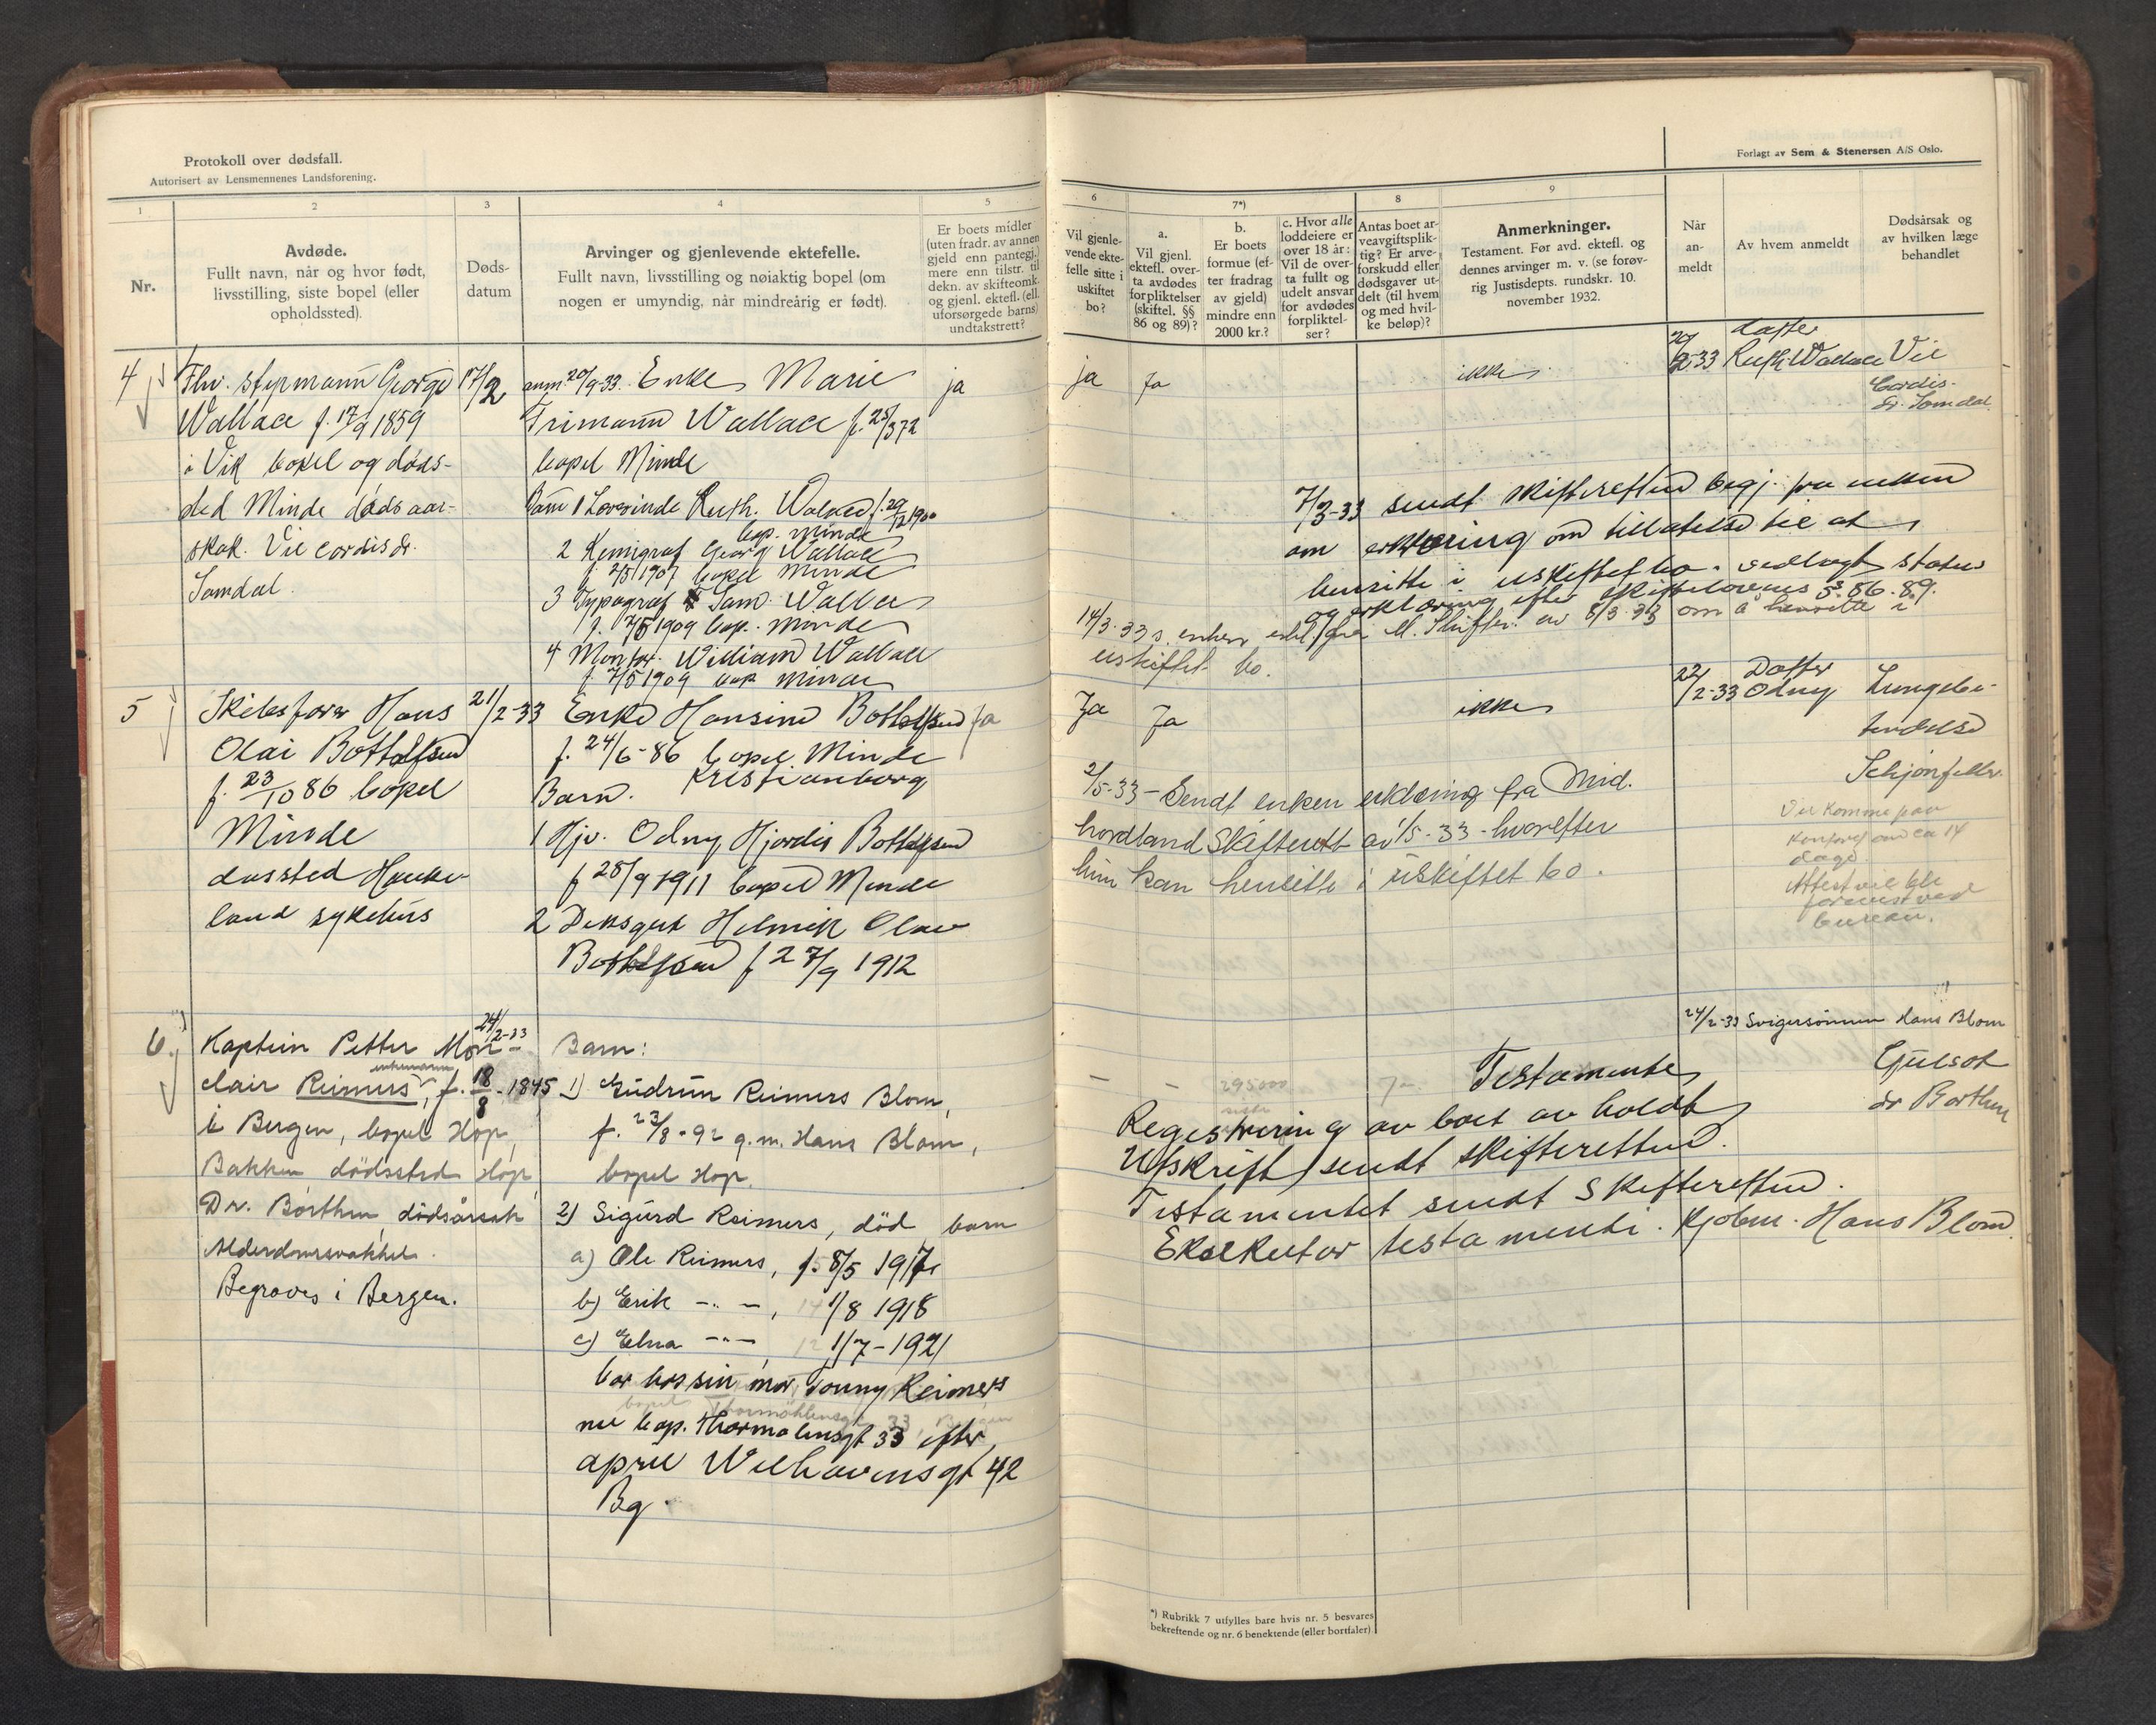 Protokoll over dødsfall.
Autorisert av Lensmennenes Landsforening.
1
2
3
4
5
Nr.
Avdøde.
Fullt navn, når og hvor født,
livsstilling, siste bopel (eller
opholdssted).
Døds-
datum
Arvinger og gjenlevende ektefelle.
Fullt navn, livsstilling og nøiaktig bopel (om
nogen er umyndig, når mindreårig er født).
Er boets midler
(uten fradr. av annen
gjeld enn pantegj.)
mere enn tilstr. til
dekn. av skifteomk.
og gjenl. ektef. (ell.
uforsørgede barns)
undtakstrett?
4
Fhv. styrmann George
Wallace f. 17/9 1859
i Vik bopel og døds-
sted Minde dødsaar-
sak. Vie cordis dr.
Somdal.
17/2
anm. 20/9-33. Enke Marie
Trimann Wallace f. 25/3 72
bopel Minde
Barn 1 Ruth. f. 29/12 1900
bop. Minde
2 Kemigraf Georg Wallace
f. 2/5 1907 bopel Minde
3 Typograf Sam. Wallace
f. 7/5 1909 bop. Minde
4 Montør. William Wallace
f. 7/5 1909 bop Minde
ja
5
Skibsfører Hans
Olai Bottolfsen
f. 23/10 86 bopel
Minde
døssted Hauke-
land sykehus
21/2-33
Enke Hansine Bottolfsen
f. 24/6-86 bopel Minde
Kristianborg
Barn.
1 Hjv. Odny Hjordis Bottolfsen
f 28/9 1911 bopel Minde
2 Deksgut Helmik Olav
Bottolfsen f 27/9 1912
Ja
6.
Kaptein Petter Mon-
clair Reimers, f. 18/8 - 1845
enkemann
i Bergen, bopel Hop,
Bakken dödssted Hop
Dr. Borthen dödsårsak
Alderdomssvakhet.
Begraves i Bergen.
24/2-33
Barn:
1) Gudrun Reimers Blom,
f. 23/8-92 g.m. Hans Blom,
bopel Hop.
2) Sigurd Reimers, död barn
a) Ole Reimers, f. 8/5 1917
b) Erik -"-, 14 1/8 1918
c) Elna -"-, 12 1/7-1921
bor hos sin mor, Reimers
bopel Thormöhlensgt 33, Bergen
nu bop. Thormølensgt 33 efter
april Welhavensgt 42
Bg.
Forlagt av Sem & Stenersen A/S Oslo.
6
7*)
8
9
Vil gjenle-
vende ekte-
felle sitte i
uskiftet
bo?
a.
Vil gjenl.
ektefl. over-
ta avdødes
forpliktelser
(skiftel. §§
86 og 89)?
b.
Er boets
formue (ef-
ter fradrag
av gjeld)
mindre enn
2000 kr.?
c. Hvor alle
loddeiere er
over 18 år:
Vil de over-
ta fullt og
udelt ansvar
for avdødes
forpliktel-
ser?
Antas boet ar-
veavgiftsplik-
tig? Er arve-
forskudd eller
dødsgaver ut-
delt (til hvem
og med hvil-
ke beløp)?
Anmerkninger.
Testament. Før avd. ektefl. og
dennes arvinger m. v. (se forøv-
rig Justisdepts. rundskr. 10.
november 1932.
Når
an-
meldt
Av hvem anmeldt
Dødsårsak og
av hvilken læge
behandlet
ja
Ja
ikke
20/2-33
datter
Ruth Wallace
Vie
Cordis.
dr. Somdal.
7/3-33 sendt skifteretten begj. fra enken
om erklæring om tillatelse til at
hensitte i uskiftet bo. vedlagt status
og erklæring efter skiftelovens §§. 86. 89.
14/3-33 s. enken erkl. fra M. Skifter. av 8/3 33 om å hensitte i
uskiftet bo.
Ja
Ja
ikke
22/2-33
Datter
Odny
Lungebe-
tendelse
Schjønfeldr.
2/5-33 - Sendt enken erklæring fra Mid.
hordland Skifterett av 1/5-33 - hvorefter
hun kan hensitte i uskiftet bo.
Vil komme paa
ca 14
dage.
Attest vil bli
ved
bureau.
24/2-33
Svigersönnen Hans Blom
– –
295000
Ja
Testamente
Gulsot
dr Borthen
Registrering av boet av holdt
Utskrift sendt skifteretten.
Testamentet sendt Skifteretten.
Eksekutor testamenti. Kjøbm. Hans Blom.
*) Rubrikk 7 utfylles bare hvis nr. 5 besvares
bekreftende og nr. 6 benektende (eller bortfaler)